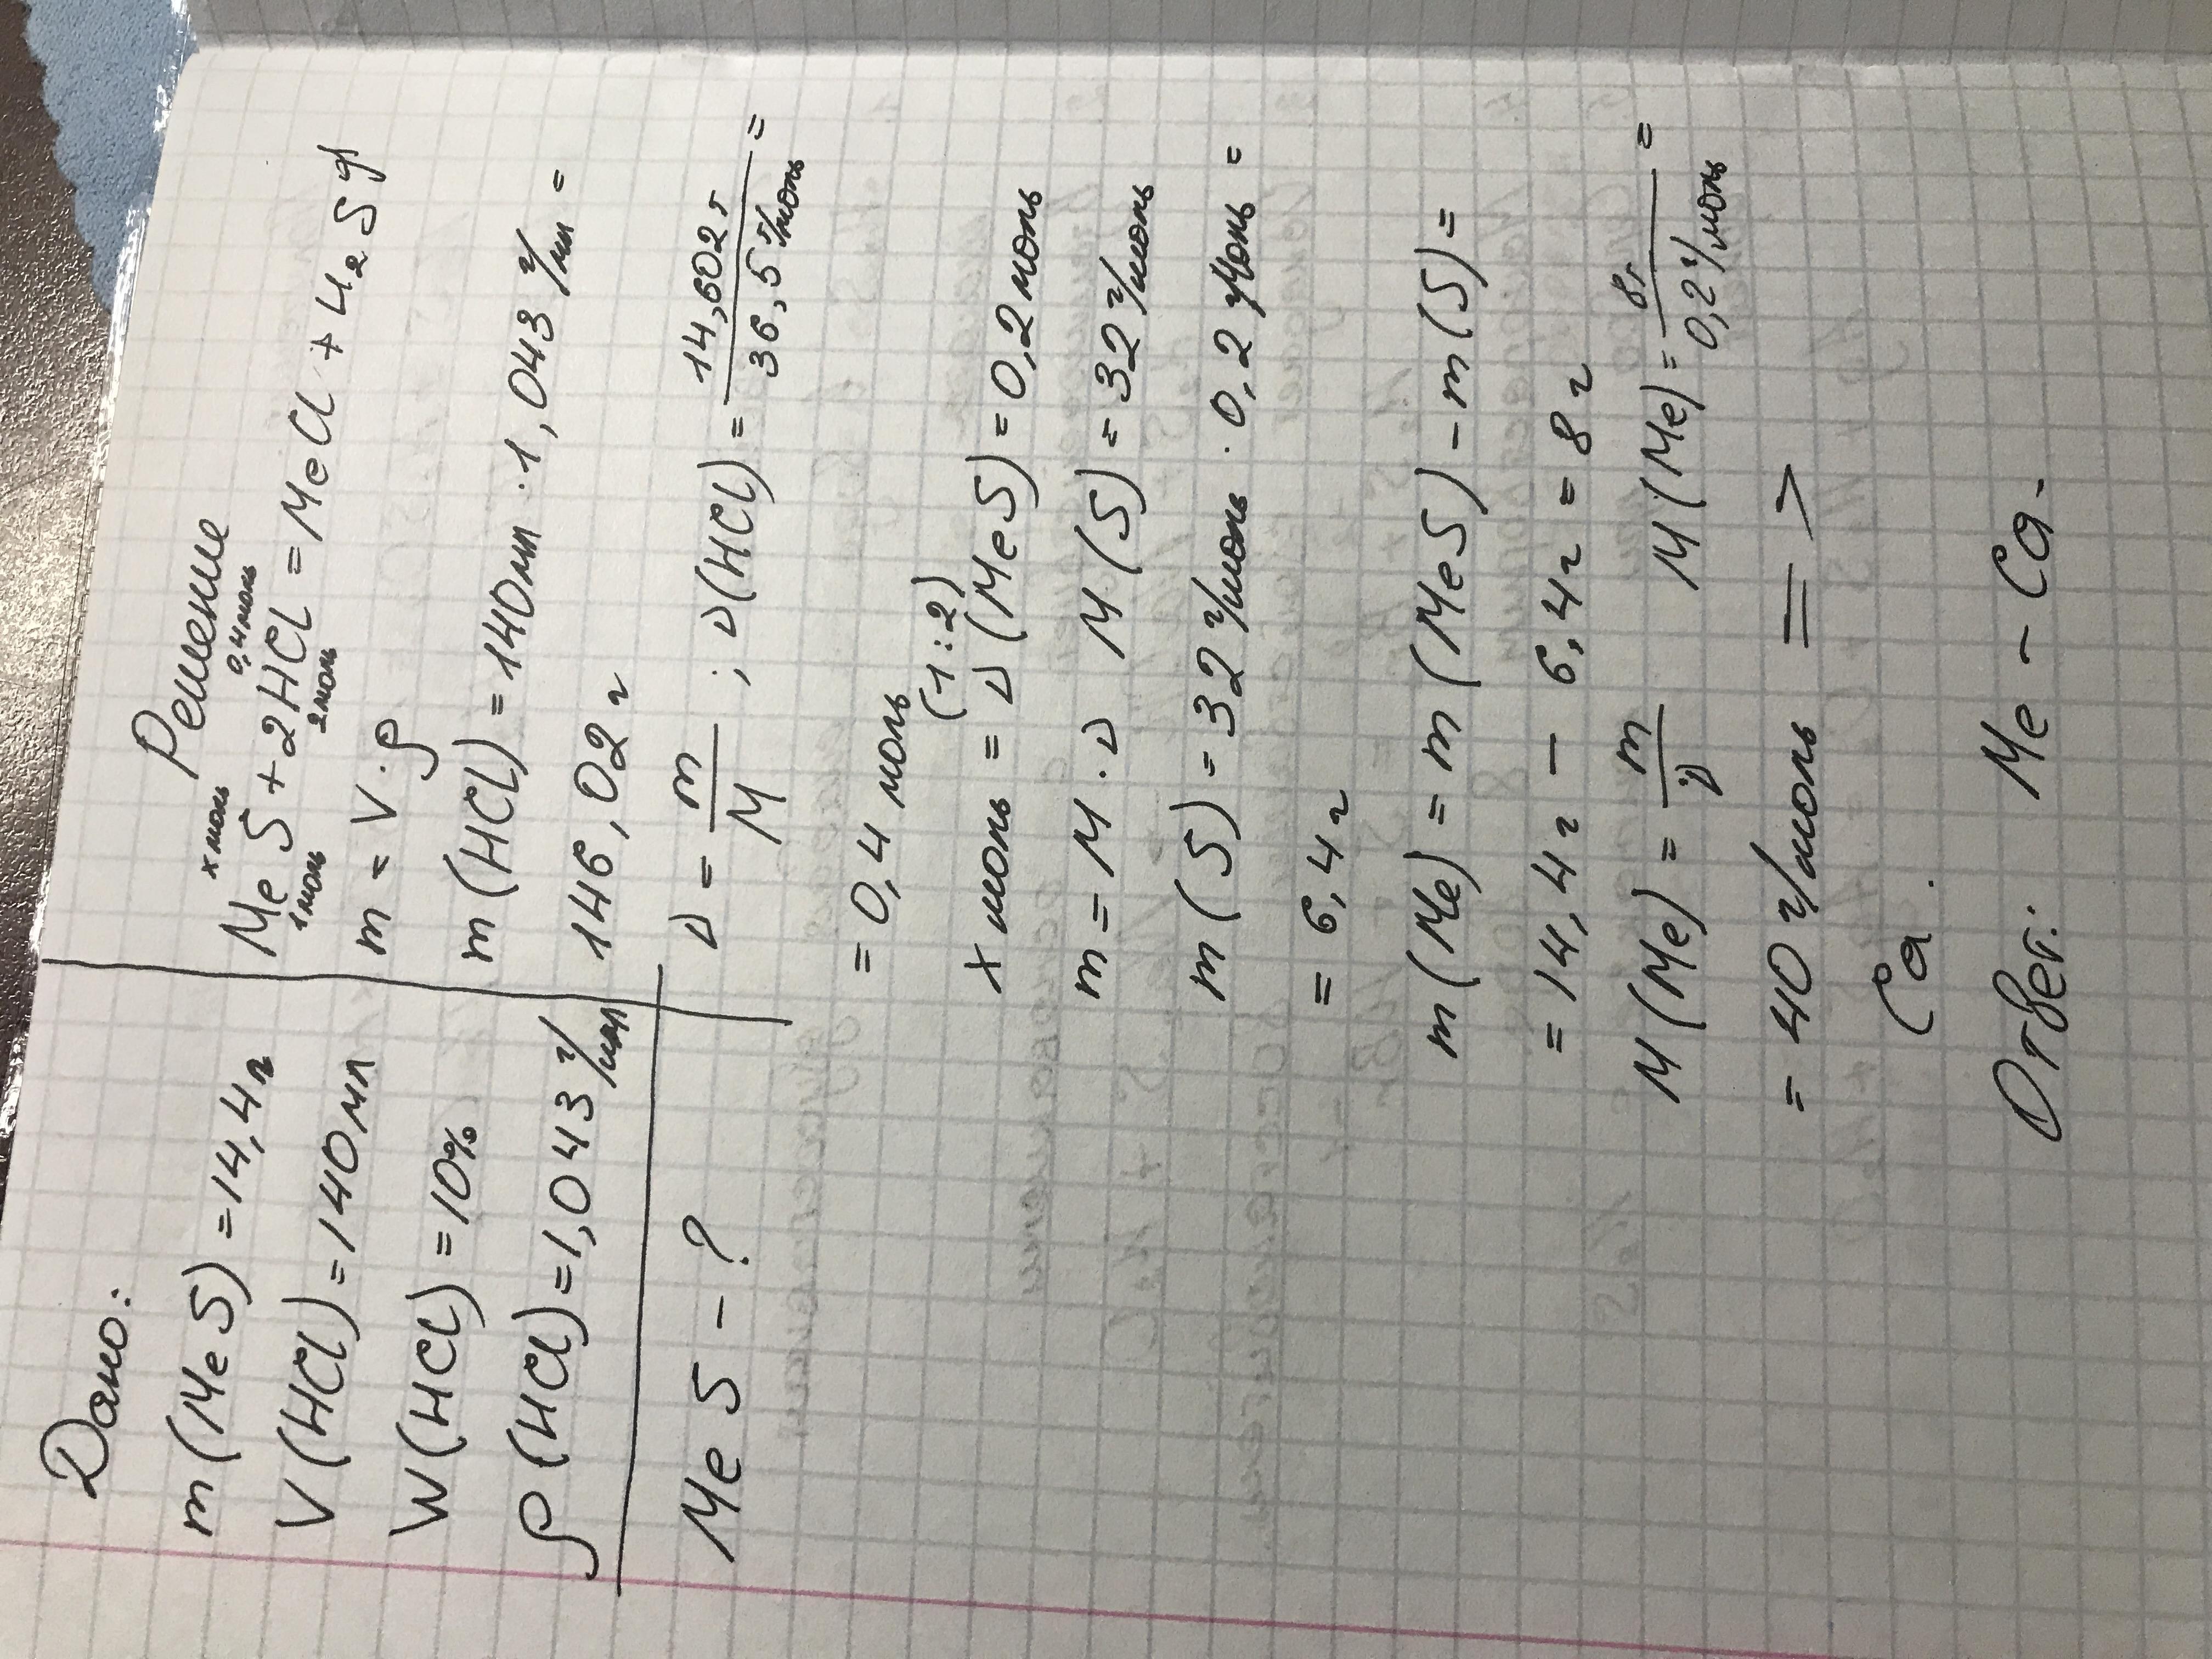 Дано:
m(MeS)=14,4г
V(HCl)=140мл
W(HCl)=10%
ρ(HCl)=1,043 г/мл
MeS-?
Решение
x моль 0,4моль
MeS+2HCl=MeCl+H₂S↑
1моль 2моль
m=V·ρ
m(HCl)=140мл·1,043 г/мл=
146,02г
ν=m/M; ν(HCl)=14,602г/36,5 г/моль=
=0,4 моль
(1:2)
x моль=ν(MeS)=0,2моль
m=M·ν M(S)=32 г/моль
m(S)=32 г/моль·0,2 моль=
=6,4г
m(Me)=m(MeS)-m(S)=
=14,4г-6,4г=8г
M(Me)=m/ν M(Me)=8г/0,2 г/моль=
=40 г/моль =>
Ca.
Ответ: Me-Ca.